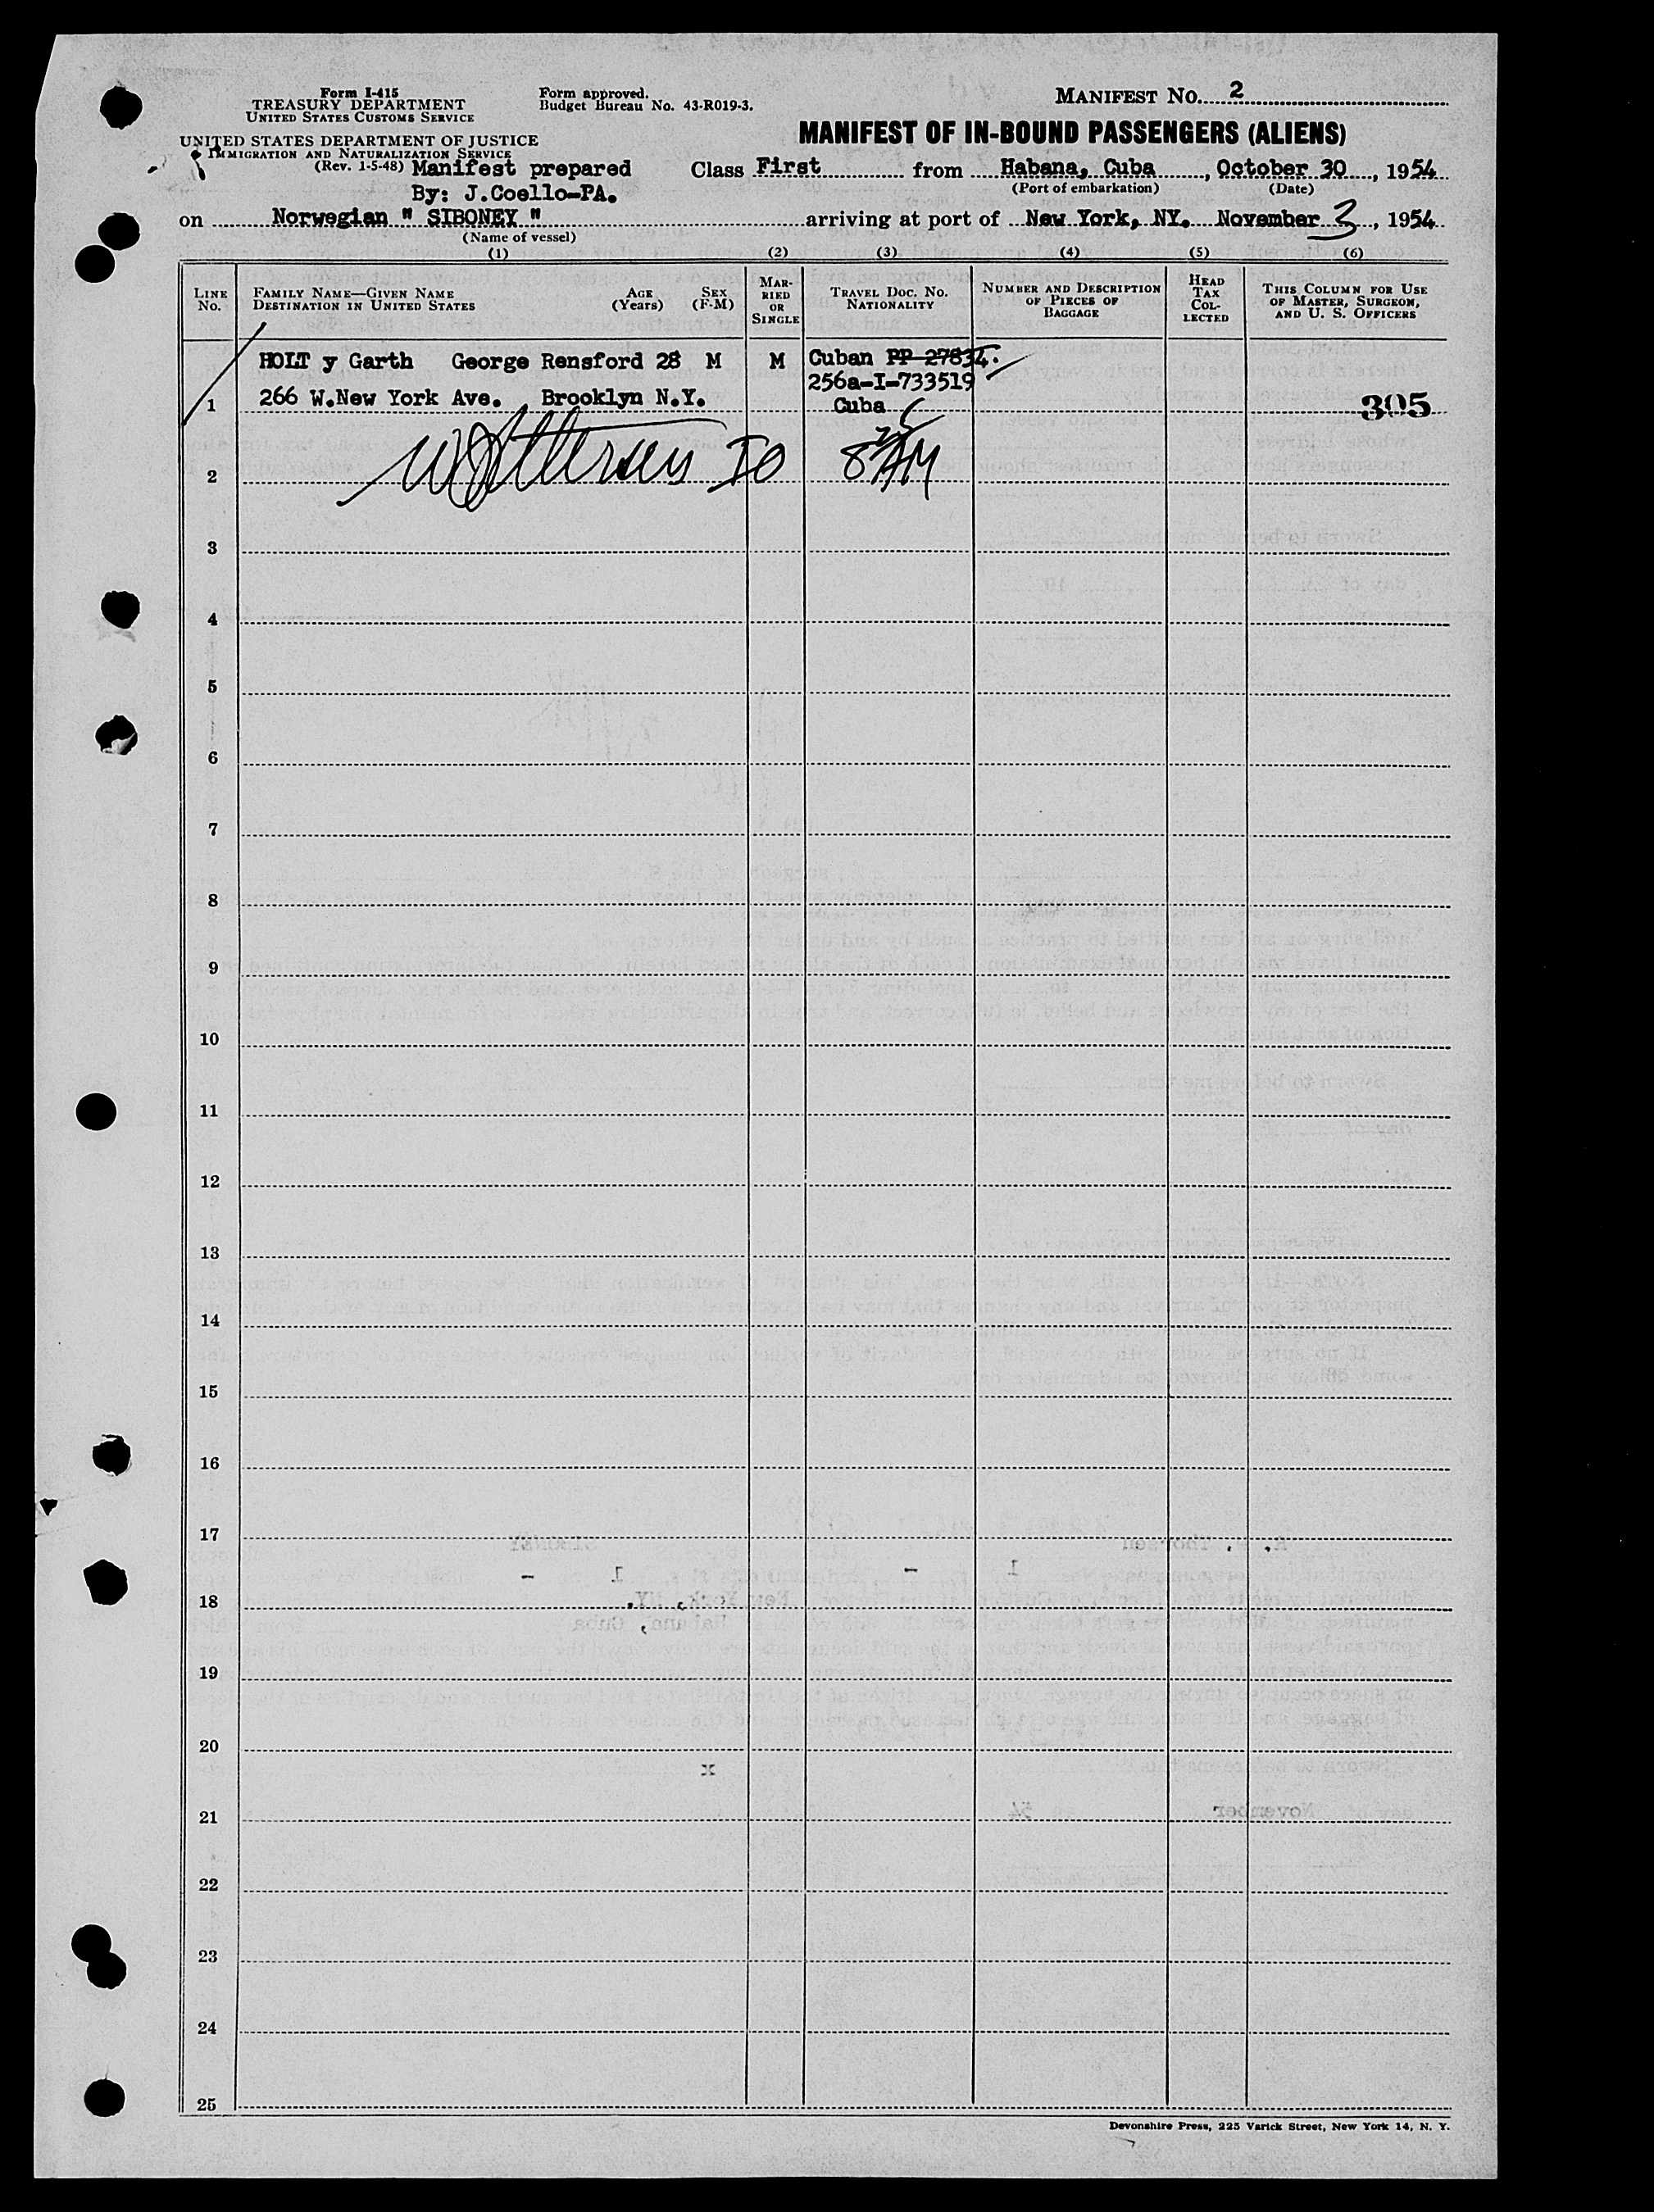 Form I-415
TREASURY DEPARTMENT
UNITED STATES CUSTOMS SERVICE
UNITED STATES DEPARTMENT OF JUSTICE
IMMIGRATION AND NATURALIZATION SERVICE
(Rev. 1-5-48) Manifest prepared
By: J.Coello-PA.
Form approved.
Budget Bureau No. 43-R019-3.
MANIFEST NO. 2
MANIFEST OF IN-BOUND PASSENGERS (ALIENS)
Class First from Habana, Cuba, October 30, 1954
(Port of embarkation) (Date)
on Norwegian " SIBONEY " arriving at port of New York, NY. November 3, 1954
(Name of vessel)
(1) (2) (3) (4) (5) (6)
LINE NO.
FAMILY NAME—GIVEN NAME
DESTINATION IN UNITED STATES
AGE (Years)
SEX (F-M)
MARRIED OR SINGLE
TRAVEL DOC. NO.
NATIONALITY
NUMBER AND DESCRIPTION OF PIECES OF BAGGAGE
HEAD TAX COLLECTED
THIS COLUMN FOR USE OF MASTER, SURGEON, AND U. S. OFFICERS
HOLT y Garth George Rensford 28 M M Cuban PP 27834.
256a-I-733519
1 266 W.New York Ave. Brooklyn N.Y. Cuba 305
2 IO 8 25 AM
3
4
5
6
7
8
9
10
11
12
13
14
15
16
17
18
19
20
21
22
23
24
25
Devonshire Press, 225 Varick Street, New York 14, N. Y.